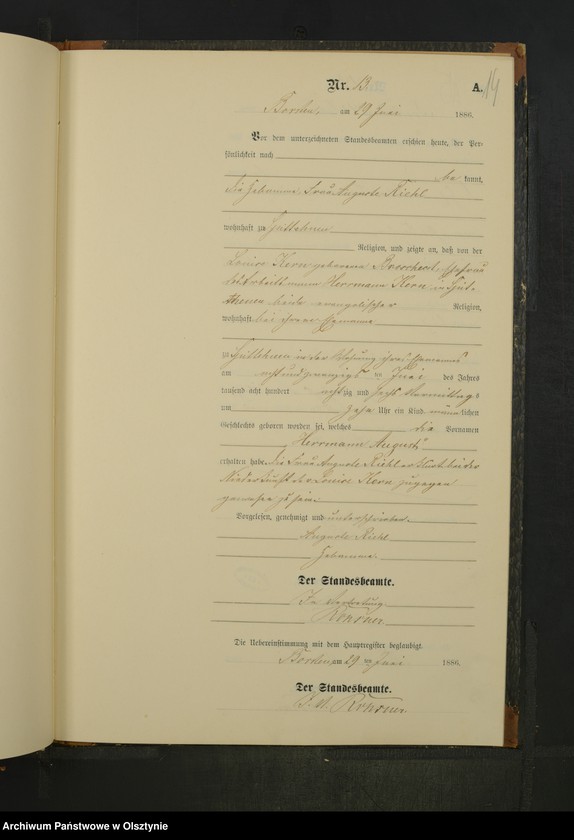 Nr. 13.
A. 14
Borken, am 29 Juni 1886.
Vor dem unterzeichneten Standesbeamten erschien heute, der Per-
sönlichkeit nach
be kannt,
die Hebamme Frau Auguste Riehl
wohnhaft zu Hüttehnen
Religion, und zeigte an, daß von der
Louise Kern geborene Ehefrau
Arbeitsmann Herrmann Kern in Hüt-
tehnen beide evangelischer Religion,
wohnhaft bei ihrem Ehemanne
zu Hüttehnen in der Wohnung ihres Ehemannes
am acht und zwanzigs ten Juni des Jahres
tausend acht hundert achtzig und sechs Vormittags
um zehn Uhr ein Kind männlichen
Geschlechts geboren worden sei, welches die Vornamen
Herrmann August
erhalten habe. Die Frau Auguste Riehl erklärt bei der
Niederkunft der Louise Kern zugegen
gewesen zu sein.
Vorgelesen, genehmigt und unterschrieben.
Auguste Riehl
Hebamme
Der Standesbeamte.
In Vertretung
Die Uebereinstimmung mit dem Hauptregister beglaubigt.
Borken, am 29 ten Juni 1886.
Der Standesbeamte.
Archiwum Państwowe w Olsztynie